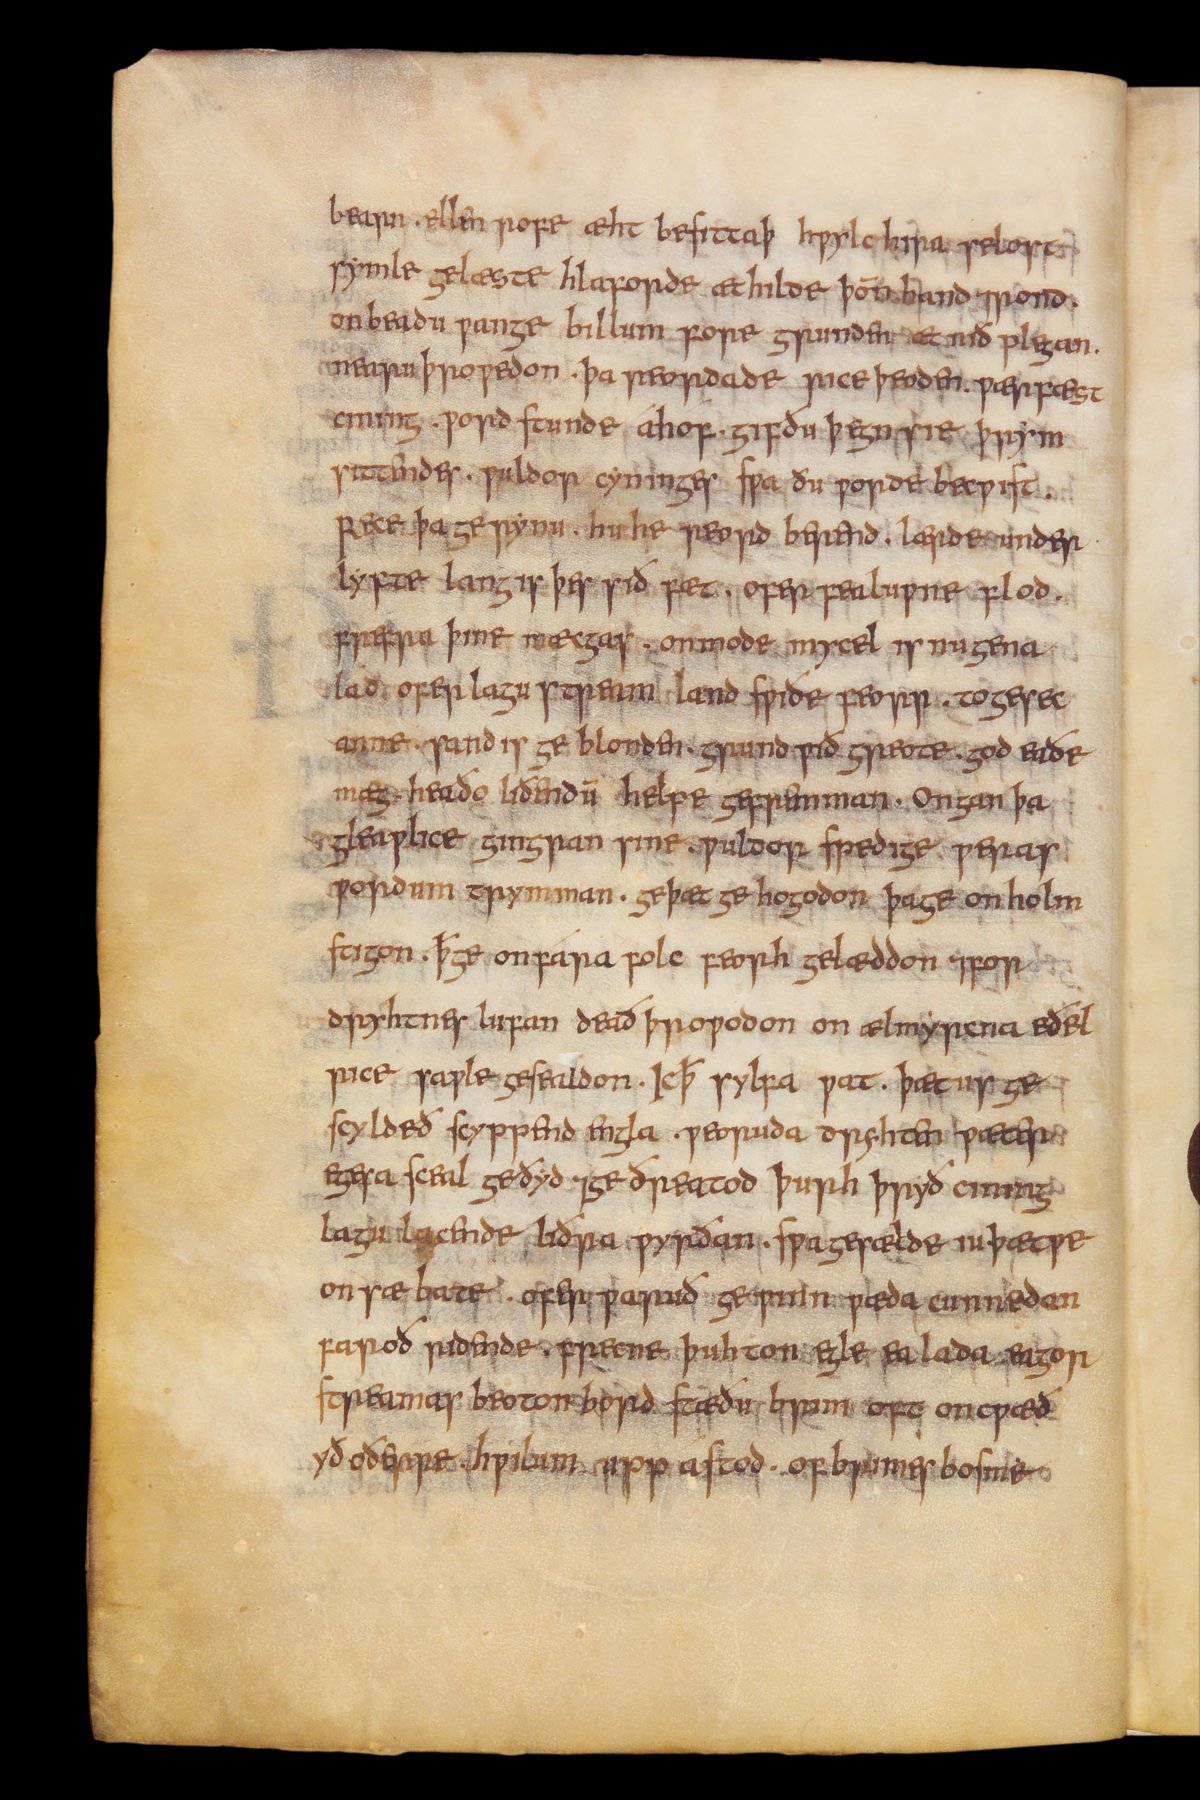 bearn · ellen rofe æht besittaþ hƿylc hira selost
symle gelæste hlaforde æt hilde þoñ hand ⁊ rond ·
on beadu ƿange billum forgrunden æt nið plegan ·
nearu þroƿedon · þa reordade rice þeoden · ƿærfæst
cining · ƿord stunde áhof · gif ðu þegn sie þrym
sittendes · ƿuldor cyninges sƿa ðu ƿorde becƿist ·
Rece þa gerynu · hu he reord berend · lærde under
lyfte lang is þes sið fæt · ofer fealuƿne flod ·
frefra þine mæcgas · on mode mycel is nu gena
lád ofer lagu stream land sƿiðe feorr · to gesec
anne · sand is ge blonden · grund ƿið greote · god eaðe
mæg · heaðo liðendū helpe gefremman · Ongan þa
gleaƿlice gingran sine · ƿuldor sƿedige ƿeras
ƿordum trymman · ge þæt ge hogodon þa ge on holm
stigon · ꝥ ge on fára folc feorh gelæddon ⁊ for
dryhtnes lufan deað þroƿodon on ælmyrcna eðel
rice saƿle gesealdon · Ic ꝥ sylfa ƿat · þæt us ge
scyldeð scyppend engla · ƿeoruda dryhten ƿæter
egesa sceal geðyd ⁊ ge ðreatod þurh þryð cining
lagu lacende liðra ƿyrðan · sƿa gesælde iu þæt ƿe
on sæ bate · ofer ƿaruð geƿinn ƿæda cunnedan
faroð ridende · frecne þuhton egle ea lada eagor
streamas beoton bord stæðu brim oft oncƿæð
yð oðerre · hƿilum upp ástod · of brimes bosme